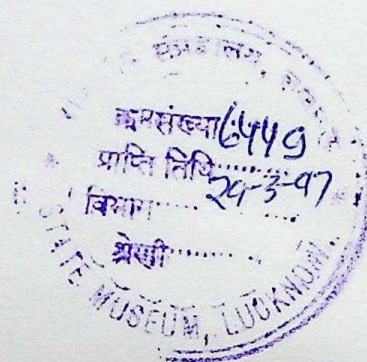 संग्रहालय,
क्रमसंख्या 6449
प्राप्ति तिथि......
विभाग..... 29-3-97
श्रेणी.......
STATE MUSEUM, LUCKNOW